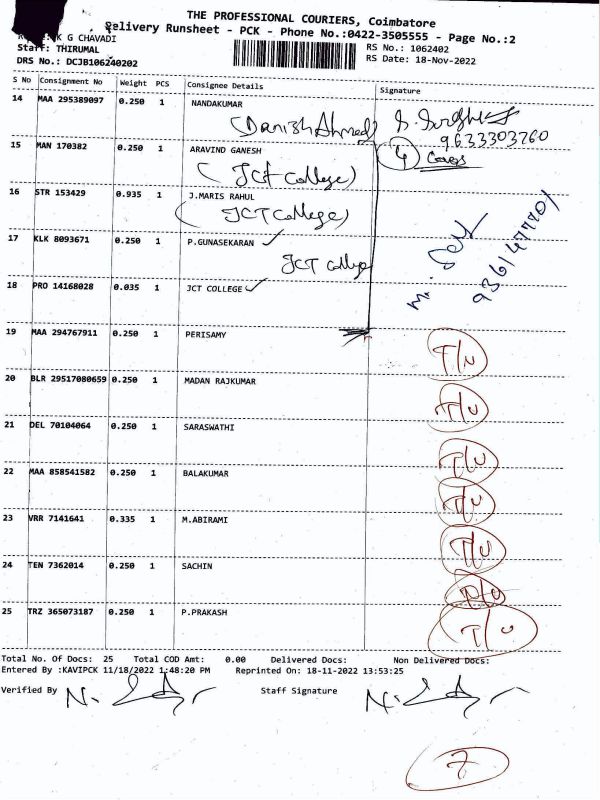 THE PROFESSIONAL COURIERS, Coimbatore
Delivery Runsheet - PCK - Phone No.:0422-3505555 - Page No.:2
K G CHAVADI
RS No.: 1062402
Staff: THIRUMAL
RS Date: 18-Nov-2022
DRS No.: DCJB106240202
S No Consignment No Weight PCS Consignee Details Signature
14 MAA 295389097 0.250 1 NANDAKUMAR
(Danish Ahmed)
9633303760
15 MAN 170382 0.250 1 ARAVIND GANESH
(JCT College)
4
16 STR 153429 0.935 1 J.MARIS RAHUL
(JCT College)
17 KLK 8093671 0.250 1 P.GUNASEKARAN
JCT College
18 PRO 14168028 0.035 1 JCT COLLEGE
19 MAA 294767911 0.250 1 PERISAMY T/U
20 BLR 29517080659 0.250 1 MADAN RAJKUMAR T/U
21 DEL 70104064 0.250 1 SARASWATHI T/U
22 MAA 858541582 0.250 1 BALAKUMAR T/U
23 VRR 7141641 0.335 1 M.ABIRAMI T/U
24 TEN 7362014 0.250 1 SACHIN
25 TRZ 365073187 0.250 1 P.PRAKASH T/U
Total No. Of Docs: 25 Total COD Amt: 0.00 Delivered Docs: Non Delivered Docs:
Entered By :KAVIPCK 11/18/2022 1:48:20 PM Reprinted On: 18-11-2022 13:53:25
Verified By Staff Signature
7